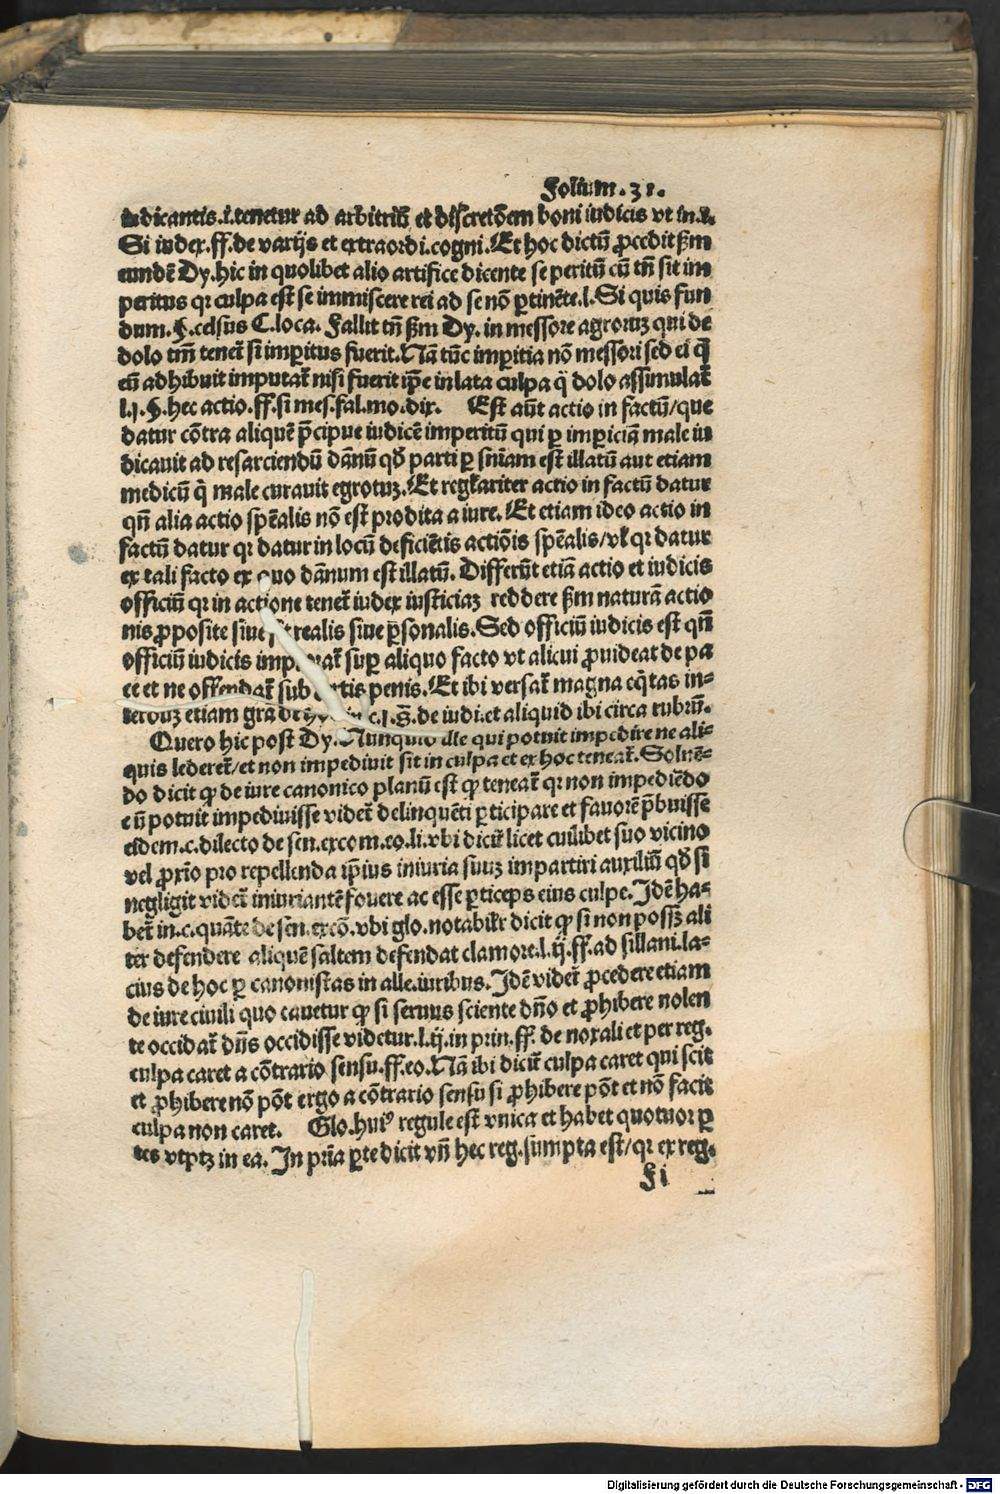 Folium.31.
iudicantis.i.tenetur ad arbitriū et discretōem boni iudicis vt in.l.
Si iudex.ff.de varijs et extraordi.cogni.Et hoc dictū ꝓcedit ẜm
eundē Dy.hic in quolibet alio artifice dicente se peritū cū tn̄ sit im
peritus qꝛ culpa est se immiscere rei ad se nō ꝑtinēte.l.Si quis fun
dum.§.celsus C.loca. Fallit tn̄ ẜm Dy.in messore agroꝝ qui de
dolo tm̄ tenet̄ si imꝑitus fuerit.Nā tūc imꝑitia nō messori sed ei q̄
eū adhibuit imputat̄ nisi fuerit ip̄e in lata culpa q̄ dolo assimulat̄
l.j.§.hec actio.ff.si mes.fal.mo.dix. Est aūt actio in factū/que
datur cōtra aliquē p̄cipue iudicē imperitū qui ꝑ imꝑiciā male iu
dicauit ad resarciendū dānū qd̄ parti ꝑ sniam est illatū aut etiam
medicū q̄ male curauit egrotuꝫ.Et regl̄ariter actio in factū datur
qn̄ alia actio spēalis nō est prodita a iure.Et etiam ideo actio in
factū datur qꝛ datur in locū deficiētis actiōis spēalis/vl̄ qꝛ datur
ex tali facto ex quo dānum est illatū.Differūt etiā actio et iudicis
officiū qꝛ in actione tenet̄ iudex iusticiaꝫ reddere ẜm naturā actio
nis ꝓposite siue sit realis siue ꝑsonalis.Sed officiū iudicis est qn̄
officiū iudicis implorat̄ suꝑ aliquo facto vt alicui ꝓuideat de pa
ce et ne offendat̄ sub certis penis.Et ibi versat̄ magna eq̄tas in-
terduꝫ etiam gra de in c.j.§.de iudi.et aliquid ibi circa rubrū.
Quero hic post Dy.Nunquid ille qui potuit impedire ne ali-
quis lederet̄/et non impediuit sit in culpa et ex hoc teneat̄.Soluē-
do dicit ꝙ de iure canonico planū est ꝙ teneat̄ qꝛ non impediēdo
cū potuit impediuisse videt̄ delinquēti ꝑticipare et fauorē p̄buisse
eidem.c.dilecto de sen.excom.eo.li.vbi dicit̄ licet cuilibet suo vicino
vel ꝓxīo pro repellenda ip̄ius iniuria suuꝫ impartiri auxiliū qd̄ si
negligit videt̄ iniuriantē fouere ac esse ꝑticeps eius culpe.Idē ha-
bet̄ in.c.quāte de sen.excō.vbi glo.notabil̄r dicit ꝙ si non possꝫ ali
ter defendere aliquē saltem defendat clamore.l.ij.ff.ad sillani.la-
cius de hoc ꝑ canonistas in alle.iuribus.Idē videt̄ ꝓcedere etiam
de iure ciuili quo cauetur ꝙ si seruus sciente dn̄o et ꝓhibere nolen
te occidat̄ dn̄s occidisse videtur.l.ij.in prin.ff.de noxali et per reg.
culpa caret a cōtrario sensu.ff.eo.Nā ibi dicit̄ culpa caret qui scit
et ꝓhibere nō pōt ergo a cōtrario sensu si ꝓhibere pōt et nō facit
culpa non caret. Glo.huiꝰ regule est vnica et habet quotuor ꝑ
tes vt ptꝫ in ea.In pria ꝑte dicit vn̄ hec reg.sumpta est/qꝛ ex reg.
F i
Digitalisierung gefördert durch die Deutsche Forschungsgemeinschaft - DFG